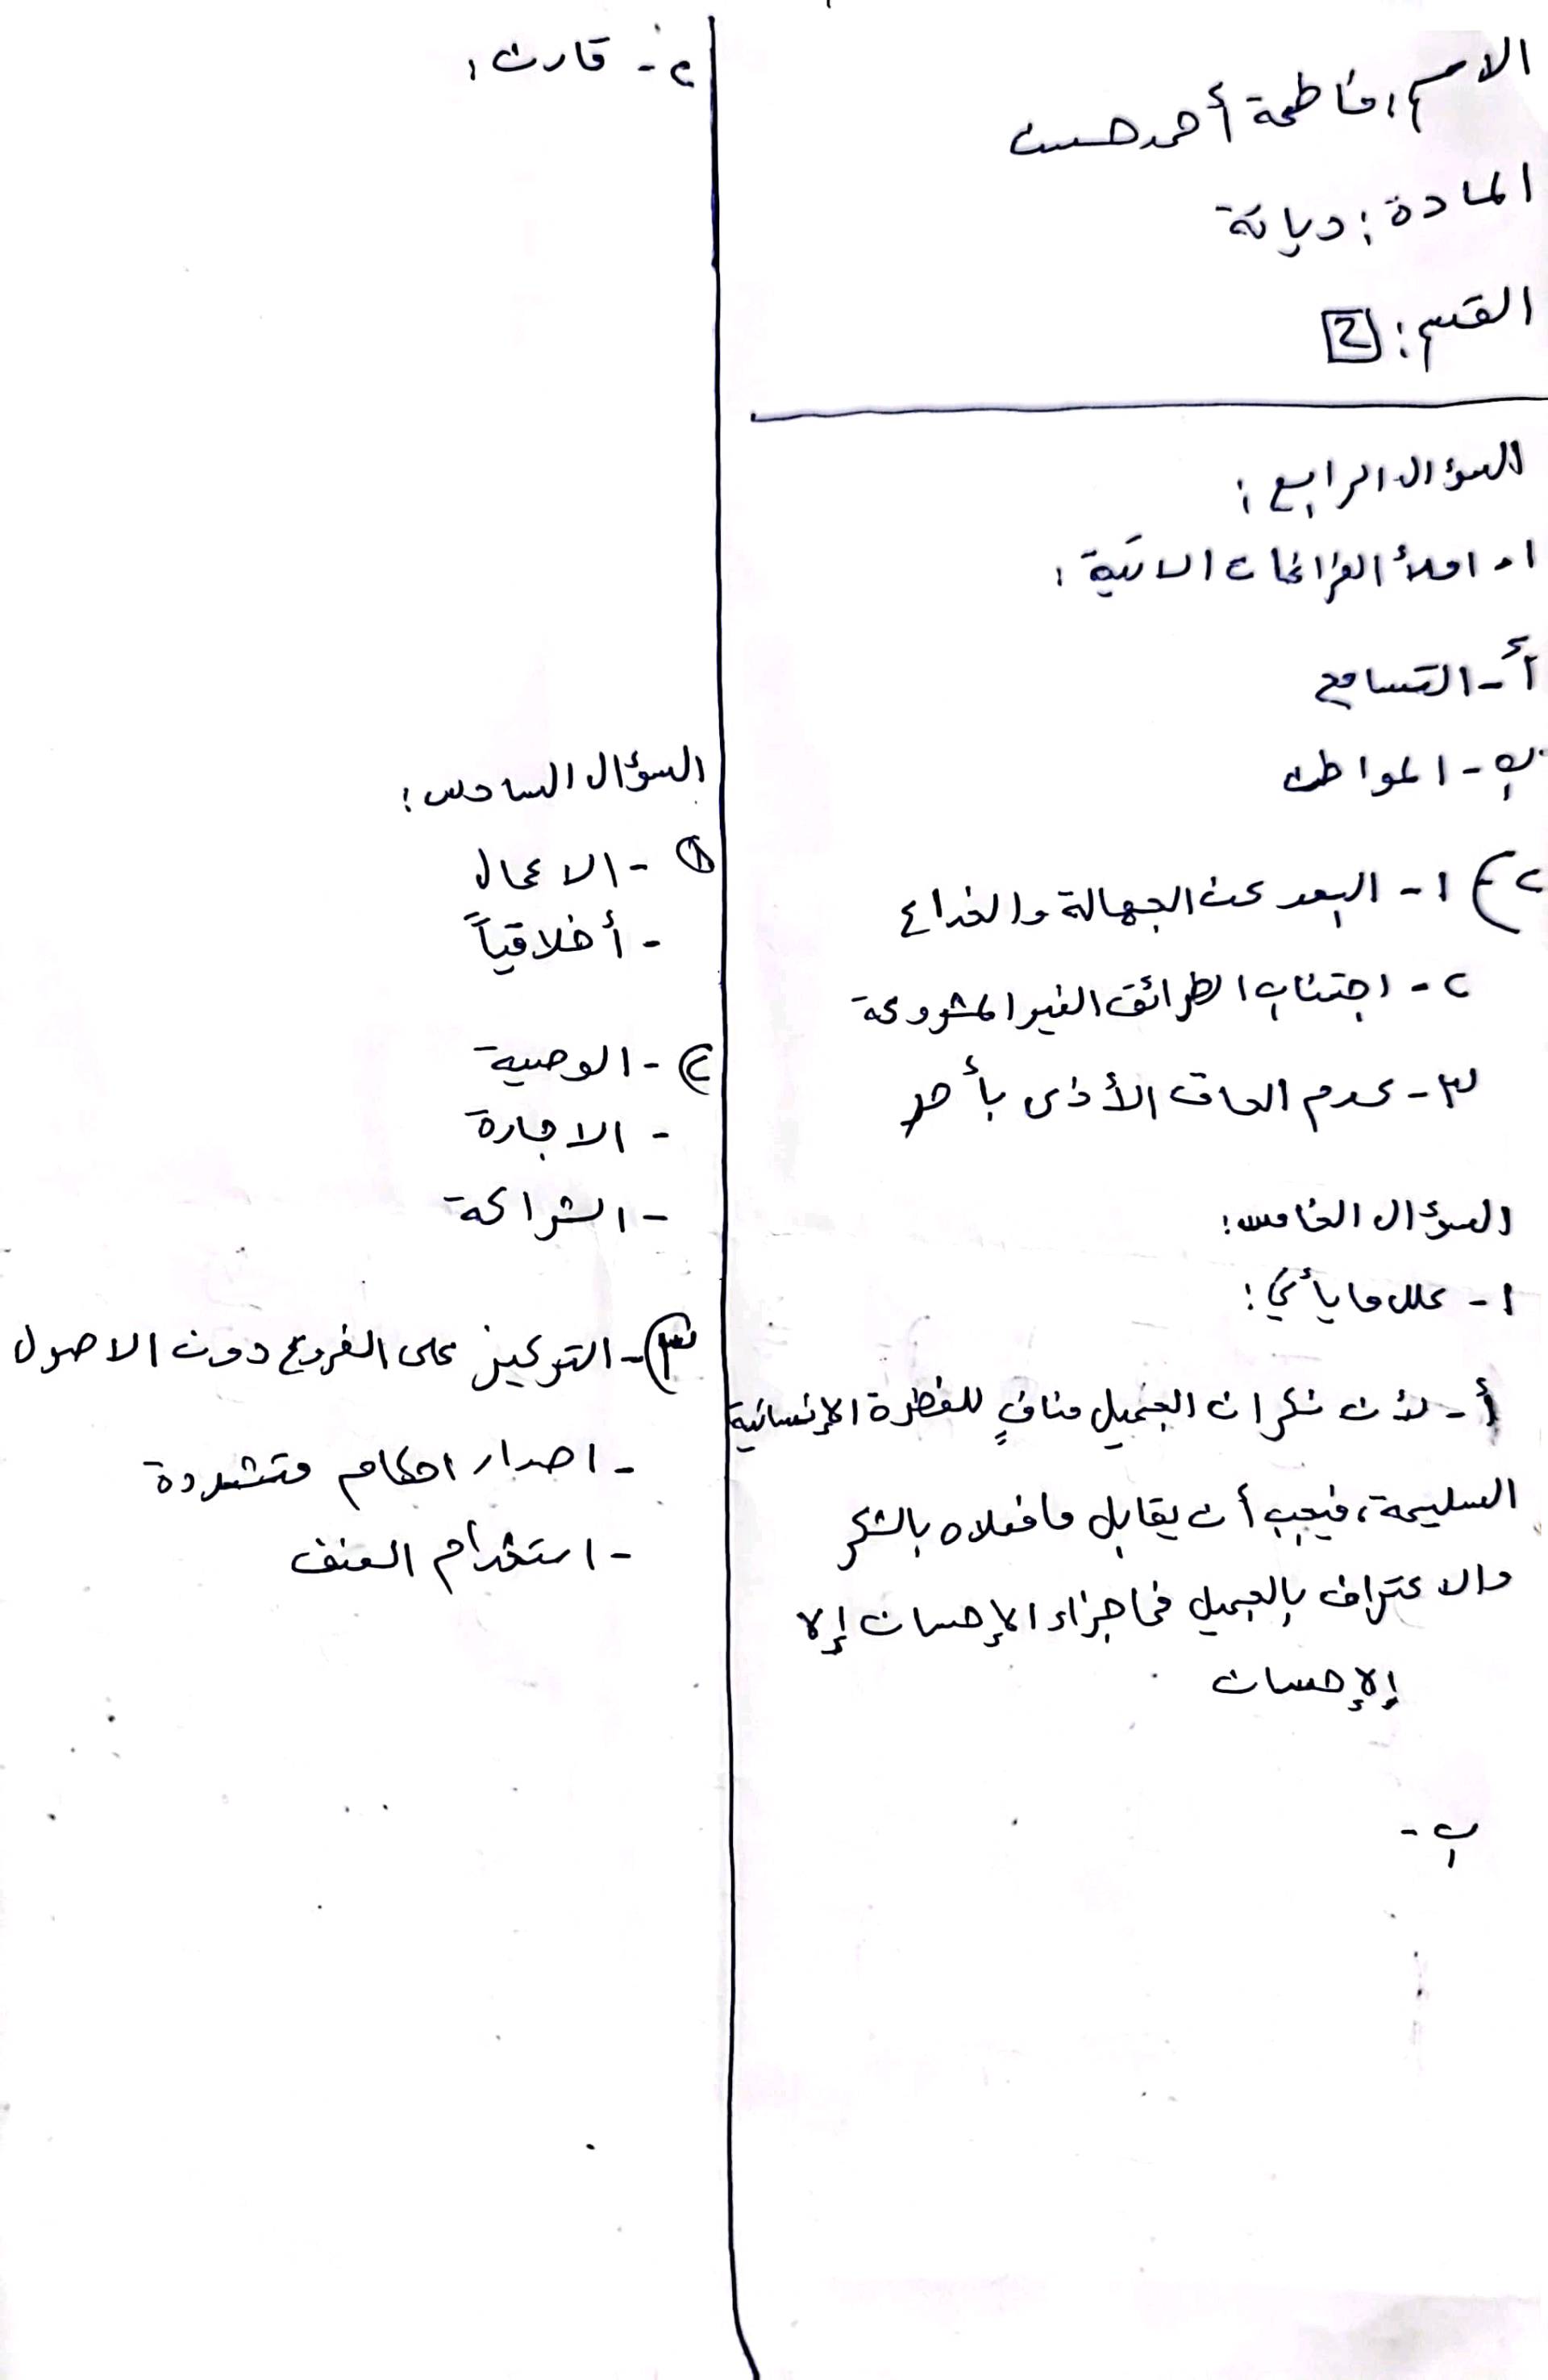 الاسم: فاطمة أحمد حسن
المادة: ديانة
القسم: 2
السؤال الرابع:
١- املأ الفراغات الاتية:
أ- التسامح
ب- المواطن
٢) ١- البعد عن الجهالة والخداع
٢- اجتناب الطرائق الغير المشروعة
٣- عدم الحاق الأذى بأحدٍ
السؤال الخامس:
١- علل ما يأتي:
أ- لأن نكران الجميل منافٍ للفطرة الإنسانية
السليمة، فيجب أن يقابل ما فعلاه بالشكر
والاعتراف بالجميل فما جزاء الإحسان إلا
الإحسان
ب-
٢- قارن:
السؤال السادس:
١) - الاعمال
- أخلاقياً
٢) - الوصية
- الاجارة
- الشراكة
٣) - التركيز على الفروع دون الاصول
- اصدار احكام متشددة
- استخدام العنف